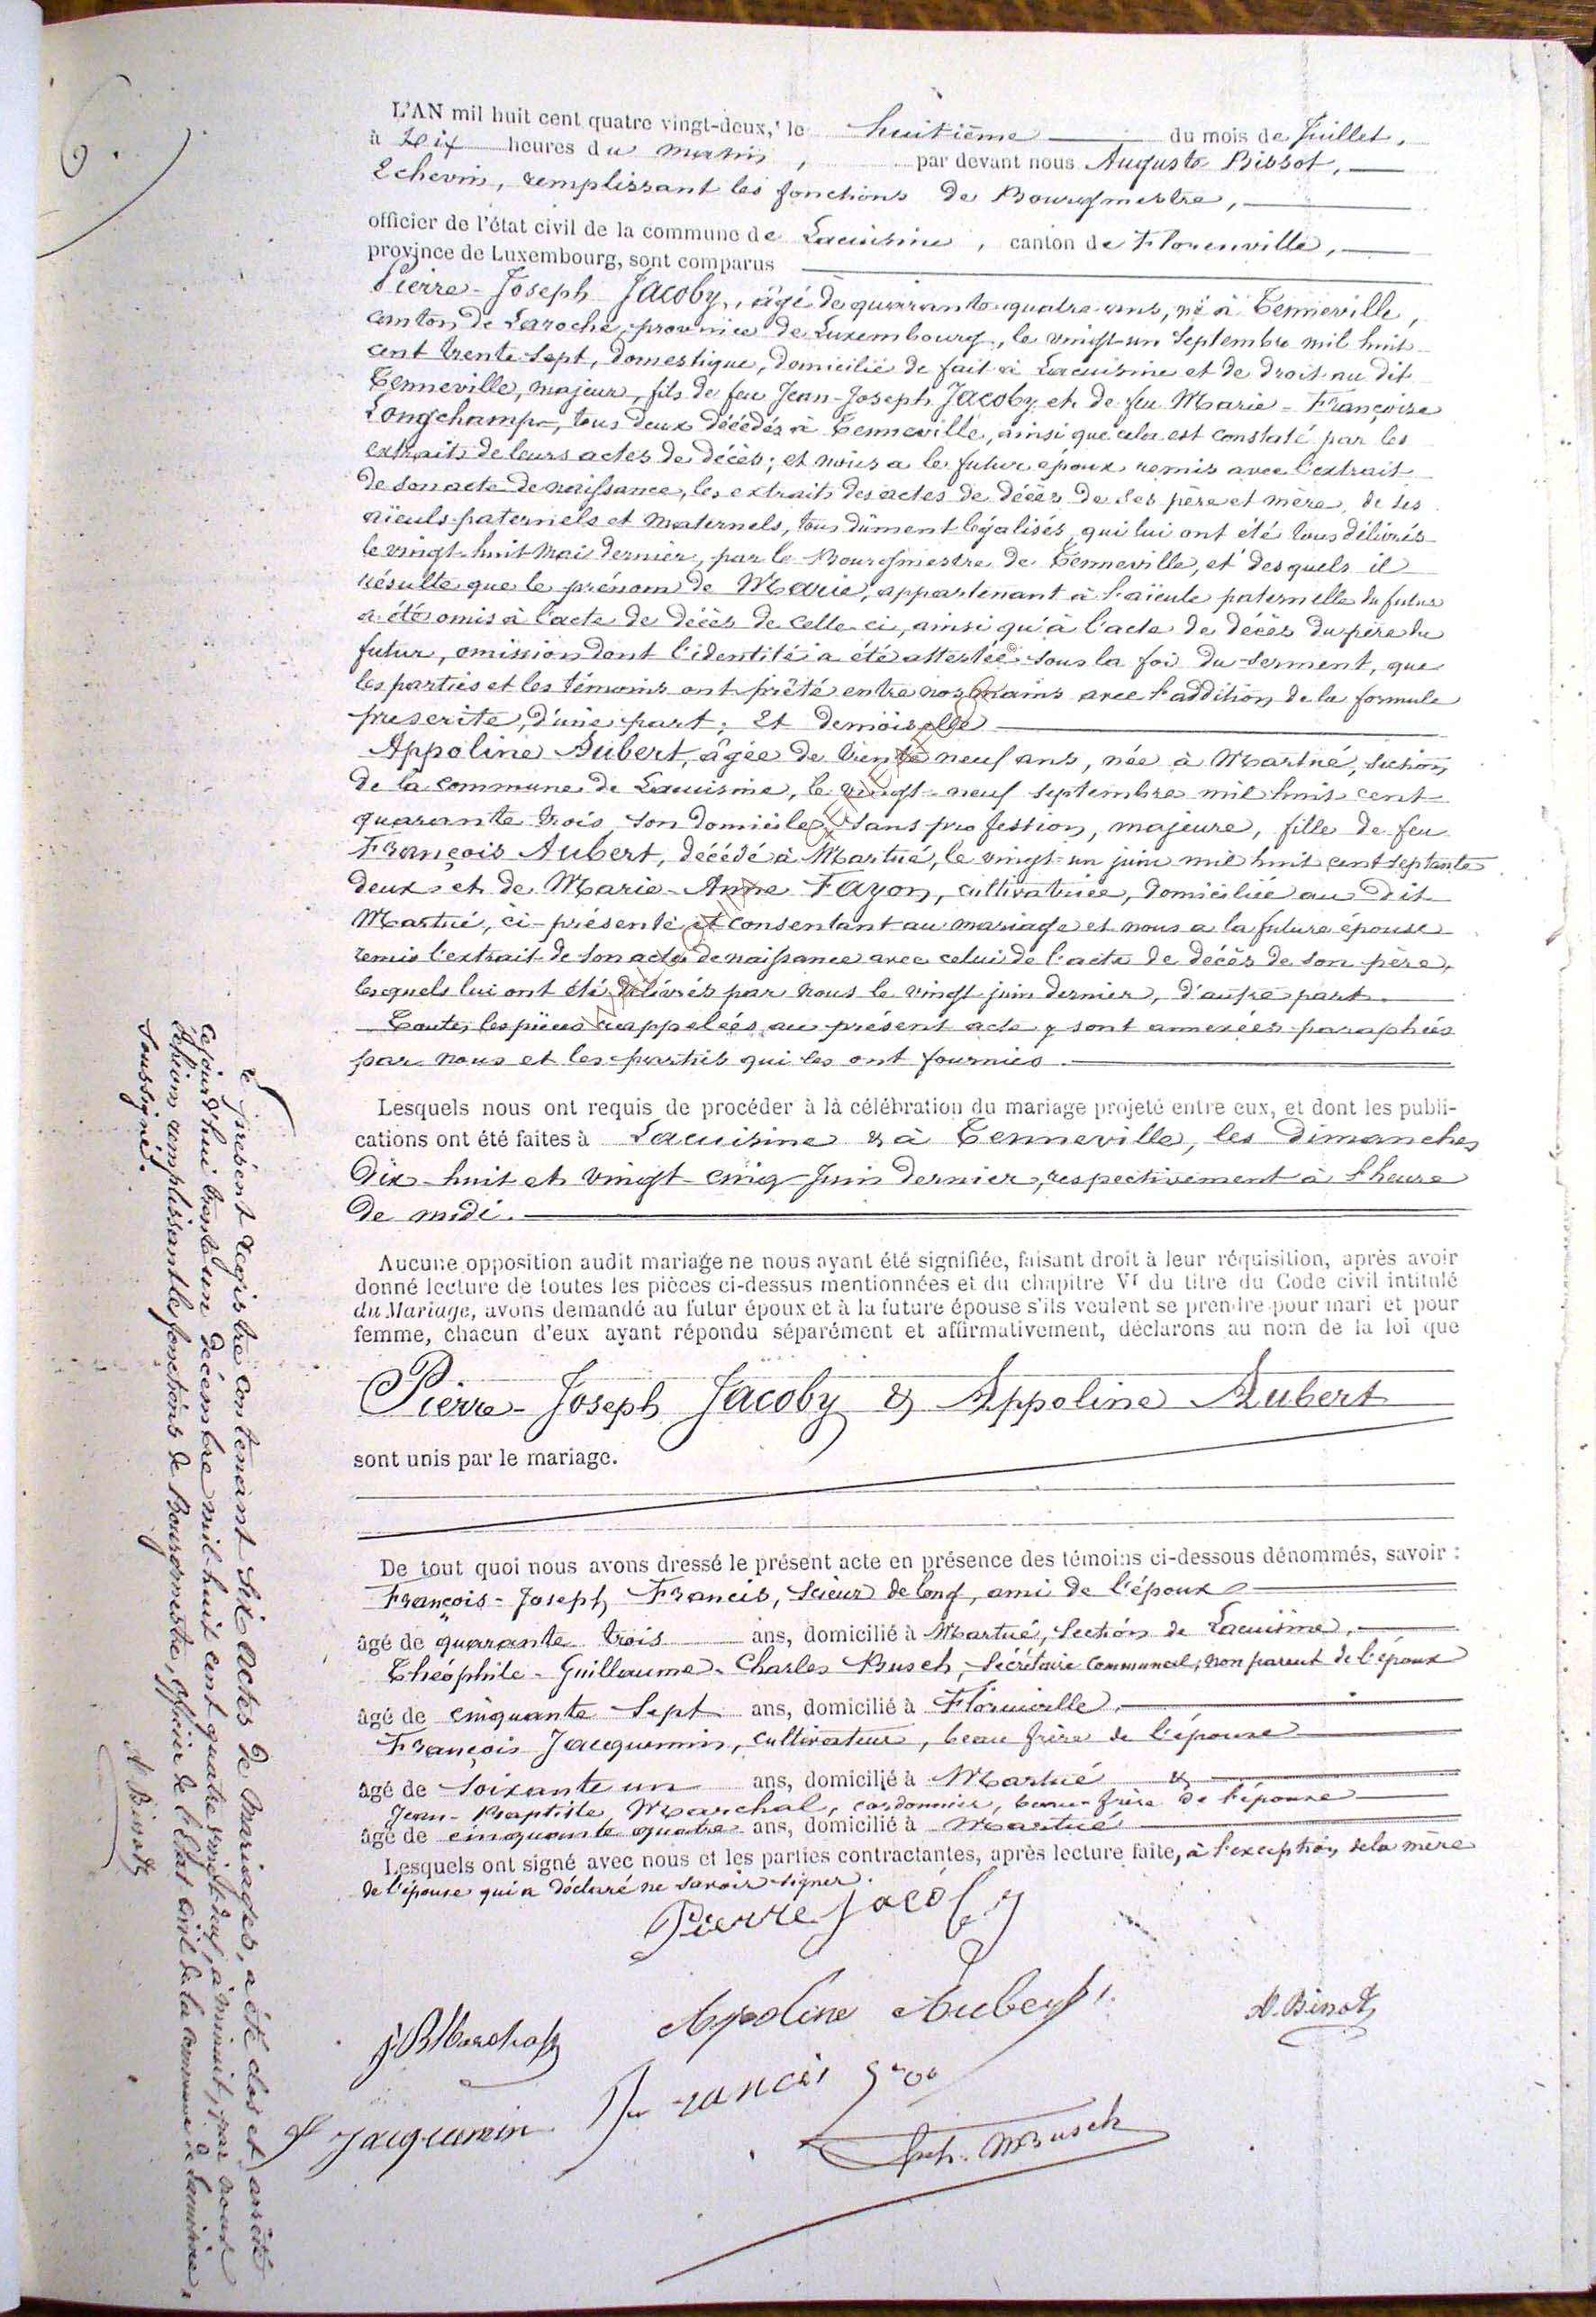 6.
L'AN mil huit cent quatre vingt-deux, le huitième du mois de Juillet,
à Dix heures du matin, par devant nous Auguste Binot,
Echevin, remplissant les fonctions de Bourgmestre,
officier de l'état civil de la commune de Lacuisine, canton de Florenville,
province de Luxembourg, sont comparus
Pierre-Joseph Jacoby, âgé de quarante quatre ans, né à Tenneville,
canton de Laroche, province de Luxembourg, le vingt-un Septembre mil huit
cent trente sept, domestique, domicilié de fait à Lacuisine et de droit au dit
Tenneville, majeur, fils de feu Jean-Joseph Jacoby et de feu Marie-Françoise
Longchamps, tous deux décédés à Tenneville, ainsi que cela est constaté par les
extraits de leurs actes de décès; et nous a le futur époux remis avec l'extrait
de son acte de naissance, les extraits des actes de décès de ses père et mère, de ses
aïeuls paternels et maternels, tous dûment légalisés, qui lui ont été tous délivrés
le vingt-huit Mai dernier, par le Bourgmestre de Tenneville, et desquels il
résulte que le prénom de Marie, appartenant à l'aïeule paternelle du futur
a été omis à l'acte de décès de celle-ci, ainsi qu'à l'acte de décès du père du
futur, omission dont l'identité a été attestée sous la foi du serment, que
les parties et les témoins ont prêté entre nos mains avec l'addition de la formule
prescrite, d'une part; Et demoiselle
Appoline Aubert, âgée de trente neuf ans, née à Martué, section
de la commune de Lacuisine, le vingt-neuf septembre mil huit cent
quarante trois, son domicile, sans profession, majeure, fille de feu
François Aubert, décédé à Martué, le vingt-un juin mil huit cent septante
deux et de Marie-Anne Fayon, cultivatrice, domiciliée au dit
Martué, ci-présente et consentant au mariage et nous a la future épouse
remis l'extrait de son acte de naissance avec celui de l'acte de décès de son père,
lesquels lui ont été délivrés par nous le vingt juin dernier, d'autre part.
Toutes les pièces rappelées au présent acte y sont annexées paraphées
par nous et les parties qui les ont fournies.
Lesquels nous ont requis de procéder à la célébration du mariage projeté entre eux, et dont les publi-
cations ont été faites à Lacuisine & à Tenneville, les dimanches
Dix-huit et vingt-cinq Juin dernier, respectivement à l'heure
de midi.
Aucune opposition audit mariage ne nous ayant été signifiée, faisant droit à leur réquisition, après avoir
donné lecture de toutes les pièces ci-dessus mentionnées et du chapitre VI du titre du Code civil intitulé
du Mariage, avons demandé au futur époux et à la future épouse s'ils veulent se prendre pour mari et pour
femme, chacun d'eux ayant répondu séparément et affirmativement, déclarons au nom de la loi que
Pierre-Joseph Jacoby & Appoline Aubert
sont unis par le mariage.
De tout quoi nous avons dressé le présent acte en présence des témoins ci-dessous dénommés, savoir :
François-Joseph Francis, Scieur de long, ami de l'époux
âgé de quarante trois ans, domicilié à Martué, Section de Lacuisine,
Théophile-Guillaume-Charles Busch, Secrétaire communal, non parent de l'époux
âgé de cinquante Sept ans, domicilié à Florenville,
François Jacquemin, cultivateur, beau frère de l'épouse
âgé de Soixante un ans, domicilié à Martué &
Jean-Baptiste Marchal, cordonnier, beau-frère de l'épouse
âgé de cinquante quatre ans, domicilié à Martué
Lesquels ont signé avec nous et les parties contractantes, après lecture faite, à l'exception de la mère
de l'épouse qui a déclaré ne savoir signer.
Pierre Jacoby
Apoline Aubert
A. Binot
J. B Marchal
Francis
F Jacquemin
Busch
Le présent registre contenant Six actes de Mariages, a été clos et arrêté
Cejourd'hui trente un décembre mil-huit cent quatre vingt deux, à minuit, par nous
Echevin remplissant les fonctions de Bourgmestre, officier de l'Etat civil de la Commune de Lacuisine,
Soussigné.
A Binot